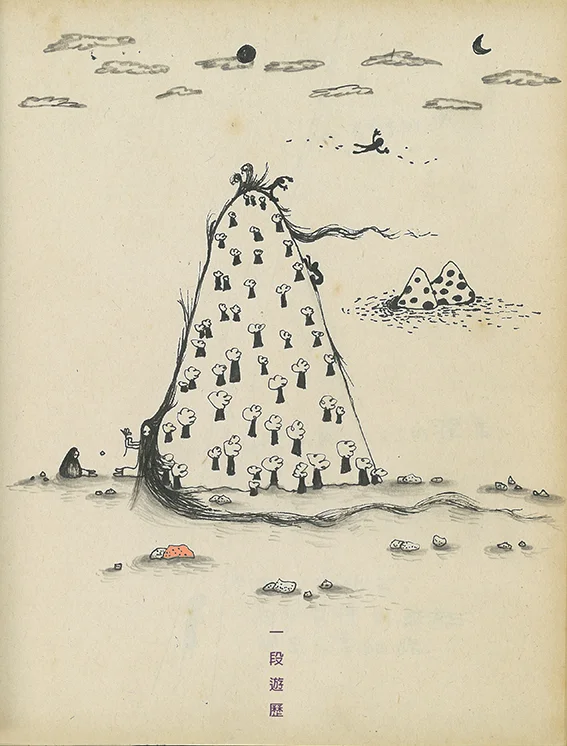 一段遊歷